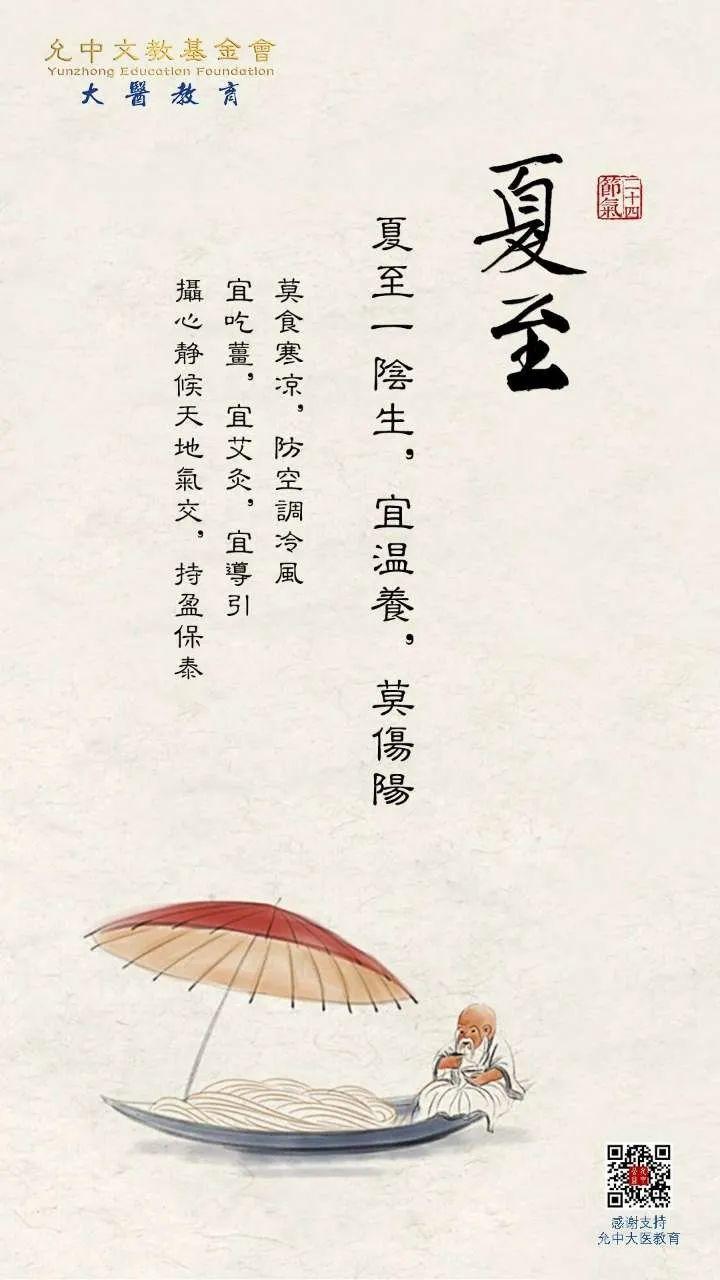 允中文教基金會
Yunzhong Education Foundation
大醫教育
二十四
節氣
夏至
夏至一陰生，宜温養，莫傷陽
莫食寒凉，防空調冷風
宜吃薑，宜艾灸，宜導引
攝心静候天地氣交，持盈保泰
感谢支持
允中大医教育